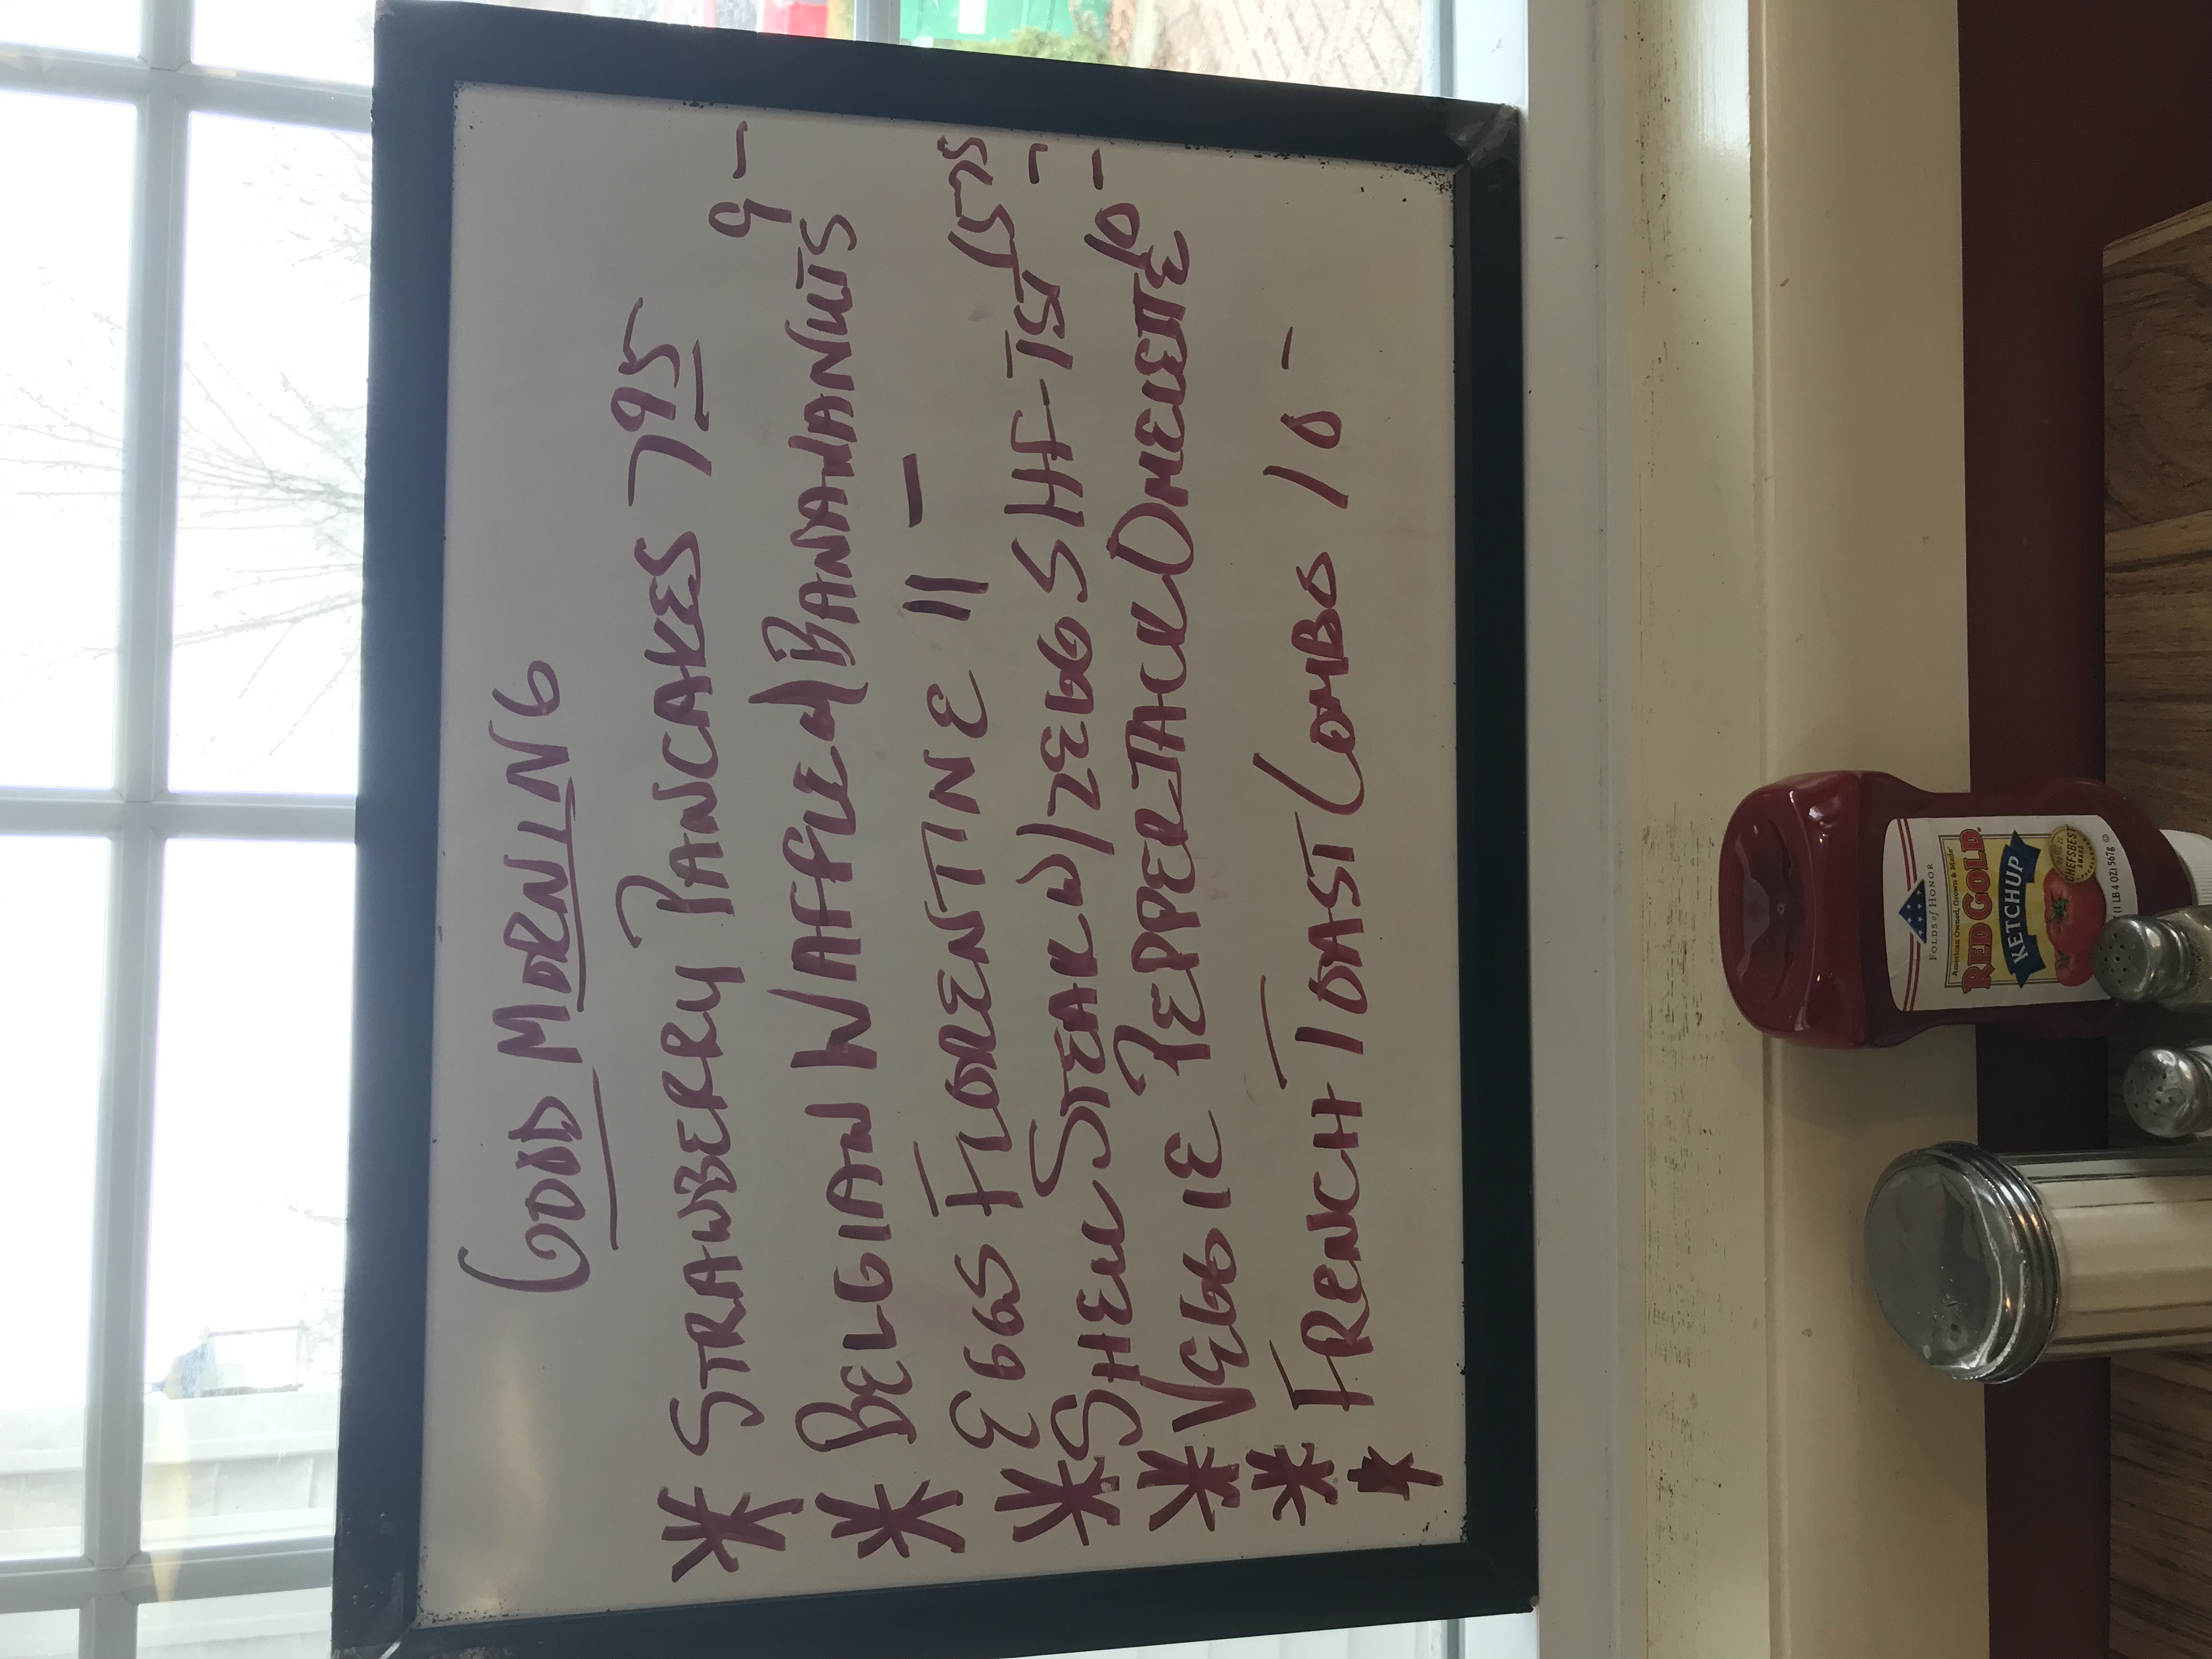 GOOD MORNING
* STRAWBERRY PANCAKES 7 95
* BELGIAN WAFFLE W/ BANANANUTS 9 -
EGGS FLORENTINE 11 -
* STEAK W/ 2 EGGS HF-TST 15 95
* VEGGIE PEPPERJACK OMELETTE 10 -
* FRENCH TOAST COMBO 10 -
*
FOLDS of HONOR
American Owned, Grown & Made
RED GOLD
KETCHUP
CHEFSBEST
AWARD
(1 LB 4 OZ) 567g